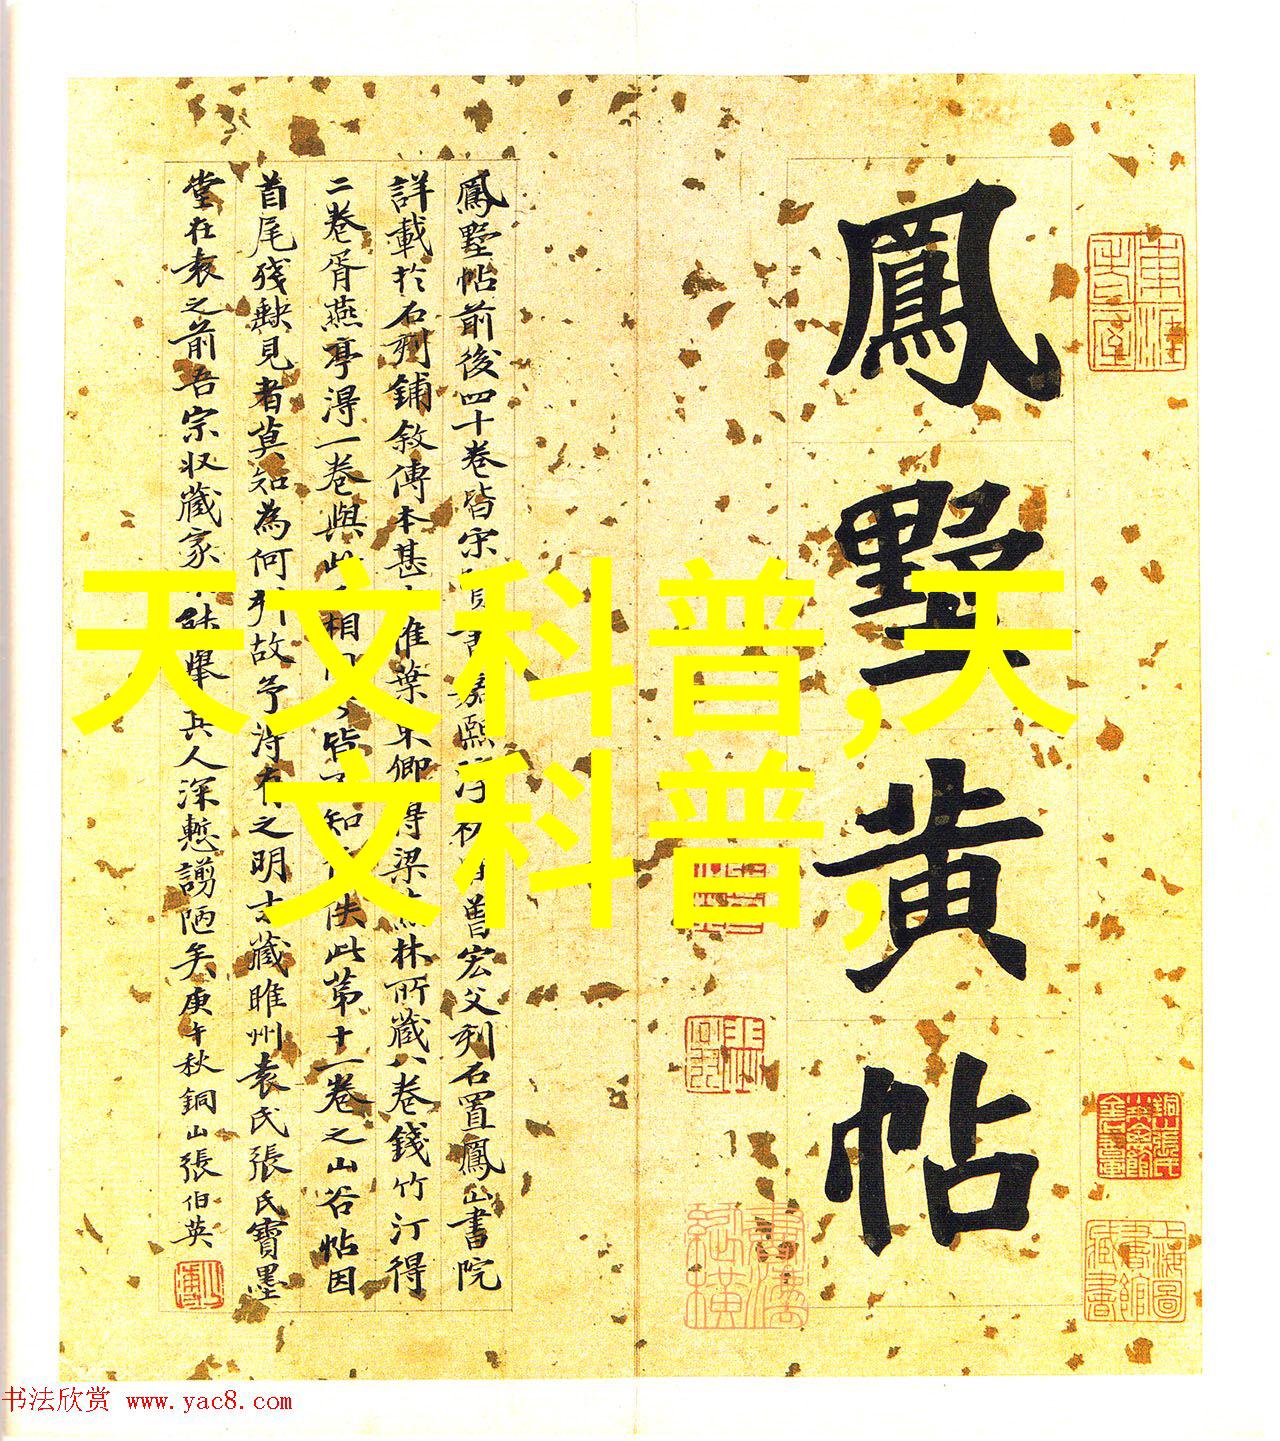 鳳墅黄帖
鳳墅帖前後四十卷皆宋
書嘉熙
曾宏父刻石置鳳山書院
詳載於石刻鋪敘傳本甚
惟葉
卿得梁
林所藏八卷錢竹汀得
二卷胥燕亭得一卷與此
相
知
佚此第十一卷之山谷帖因
首尾殘缺見者莫知為何刻故予得有之明
藏睢州袁氏張氏寶墨
堂在袁之前吾宗収藏家
能舉其人深慙謭陋矣庚午秋銅山張伯英
天文科普,天
文科普,
书法欣赏 www.yac8.com